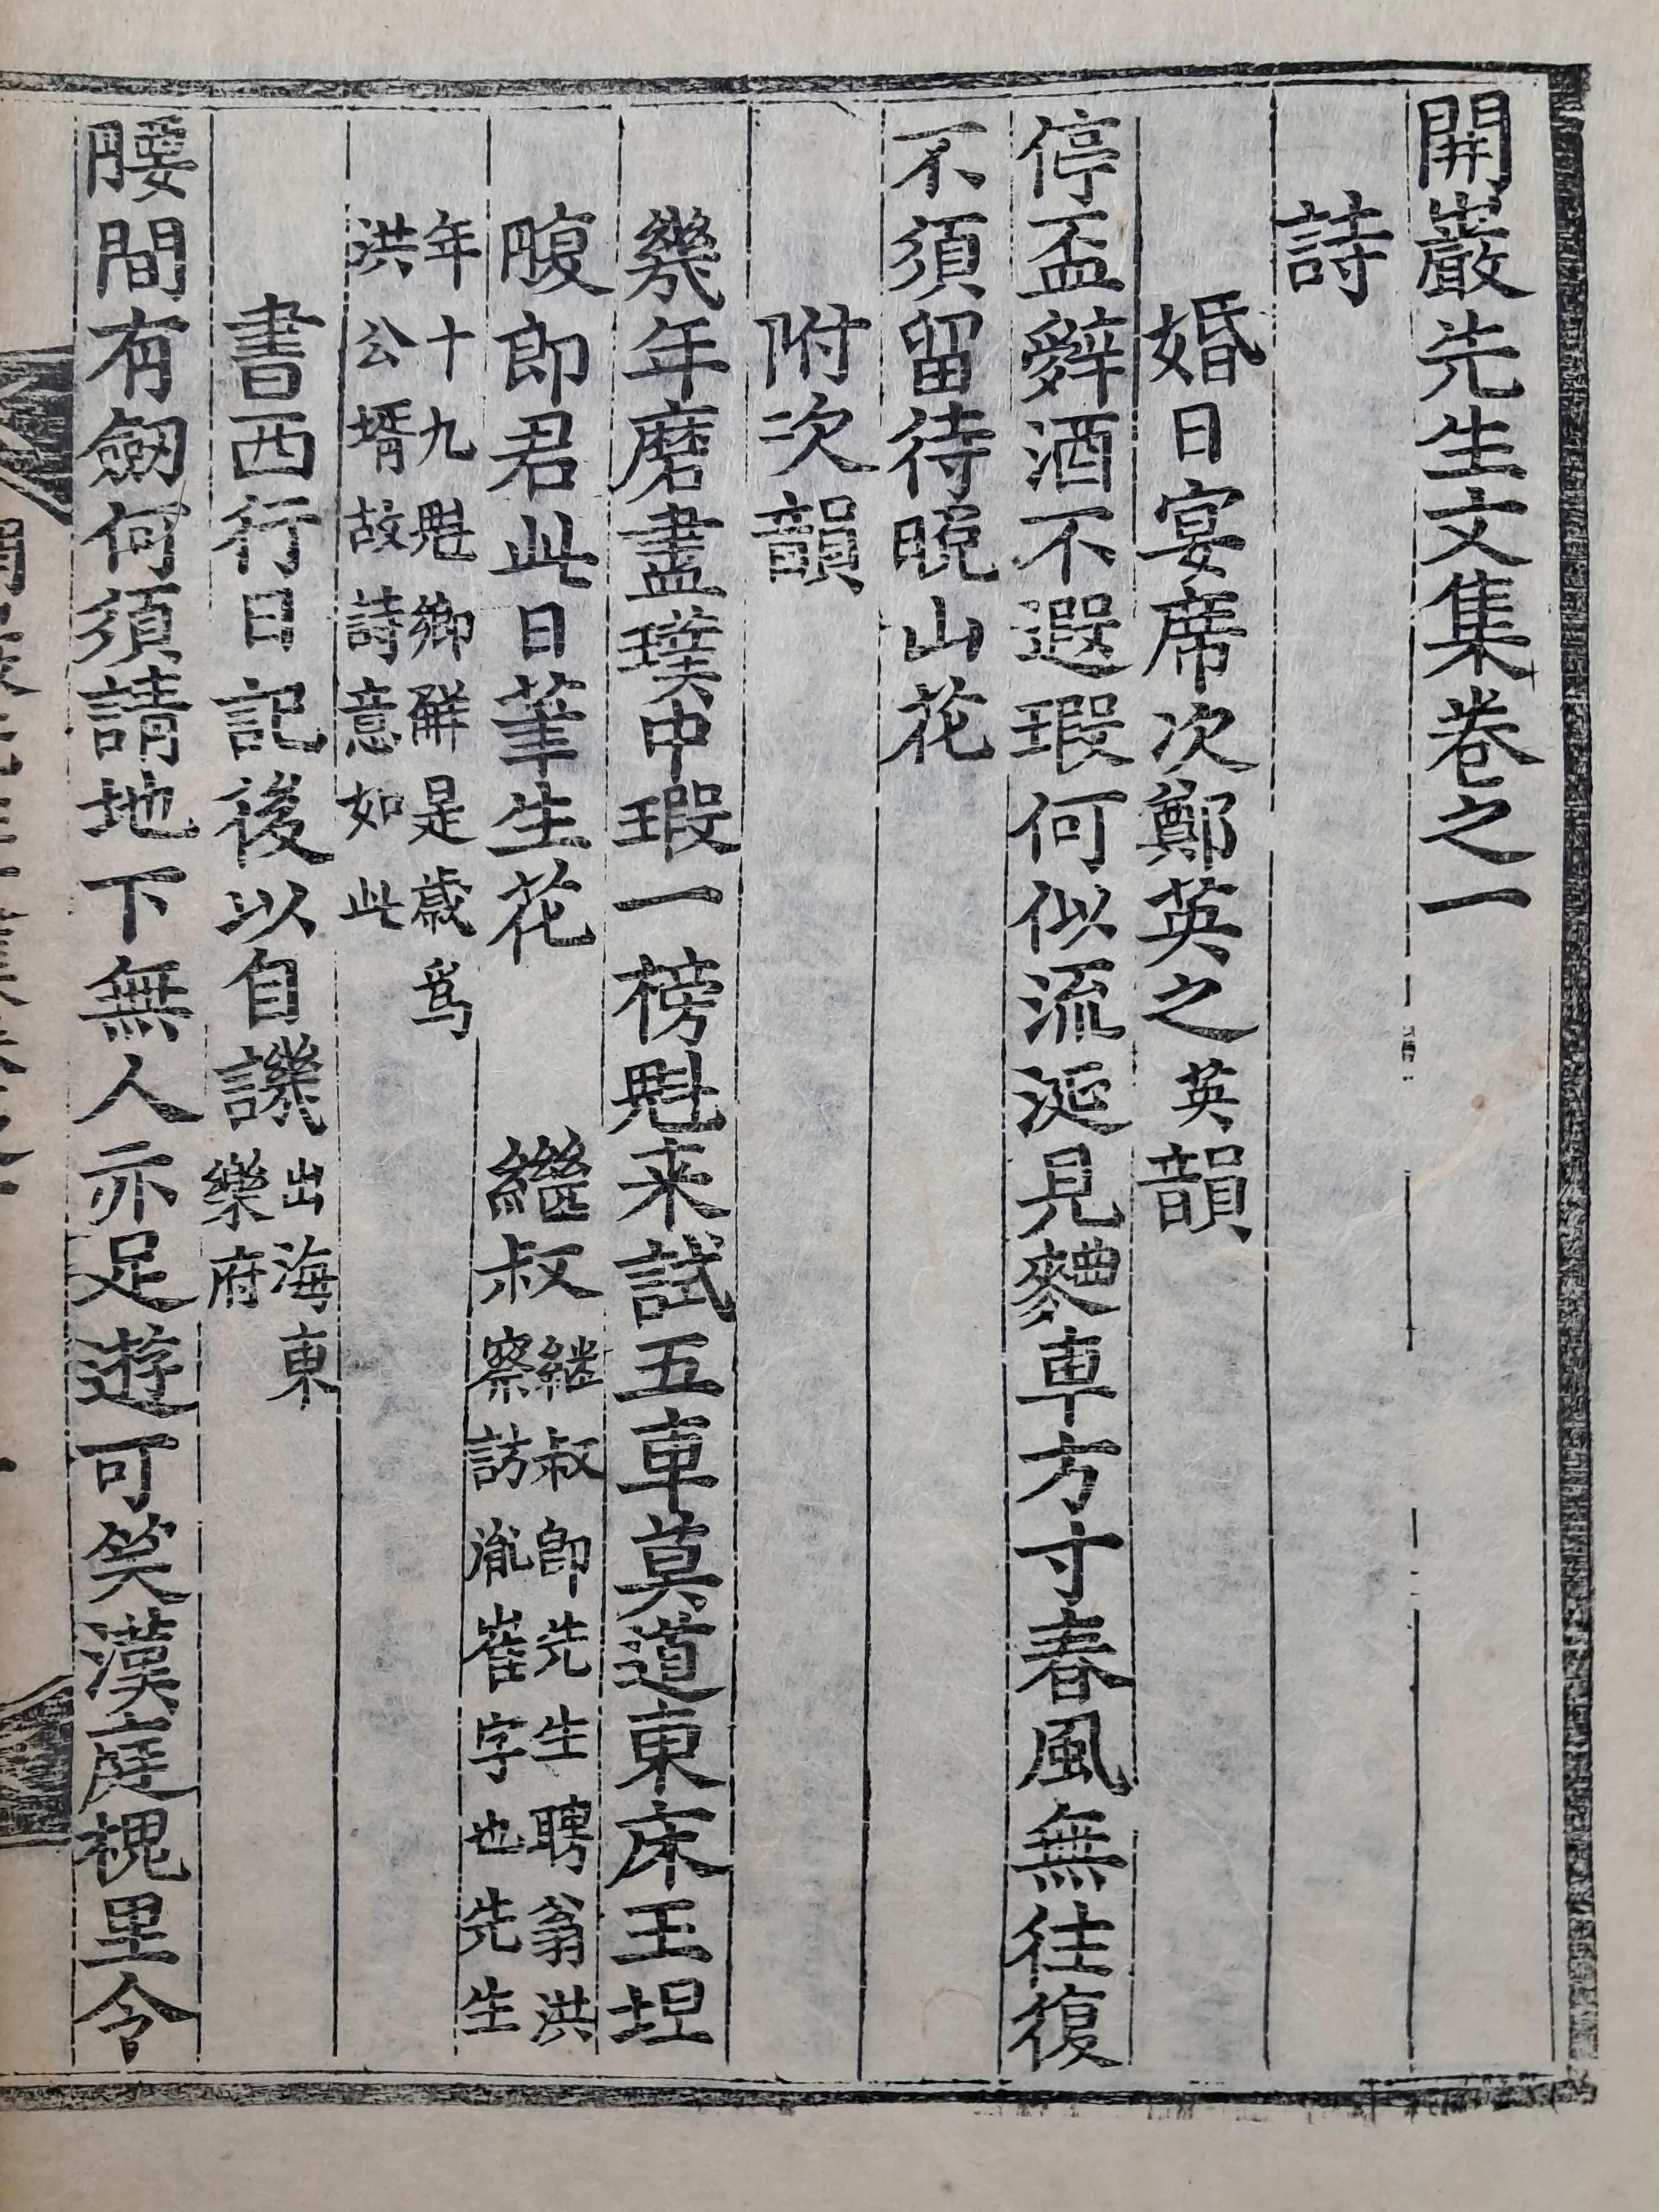 開巖先生文集卷之一
詩
婚日宴席次鄭英之英韻
停盃辤酒不遐瑕何似流涎見麴車方寸春風無徃復
不須留待晩山花
附次韻
幾年磨盡璞中瑕一榜魁来試五車莫道東床王坦
腹郎君此日筆生花 繼叔
継叔卽先生聘翁洪
察訪胤崔字也先生
年十九魁鄉觧是歲爲
洪公壻故詩意如此
書西行日記後以自譏
出海東
樂府
腰間有劒何須請地下無人亦足遊可笑漢庭槐里令